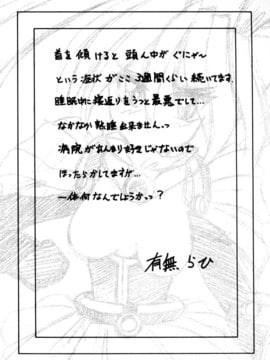 首を傾けると頭ん中がぐにゃ〜
という症状がここ3週間くらい続いてます
睡眠中に寝返りをうつと最悪でして…
なかなか熟睡出来ませんっ
病院があんまり好きじゃないので
ほったらかしてますが…
一体何なんでしょうかっ?
有無らひ